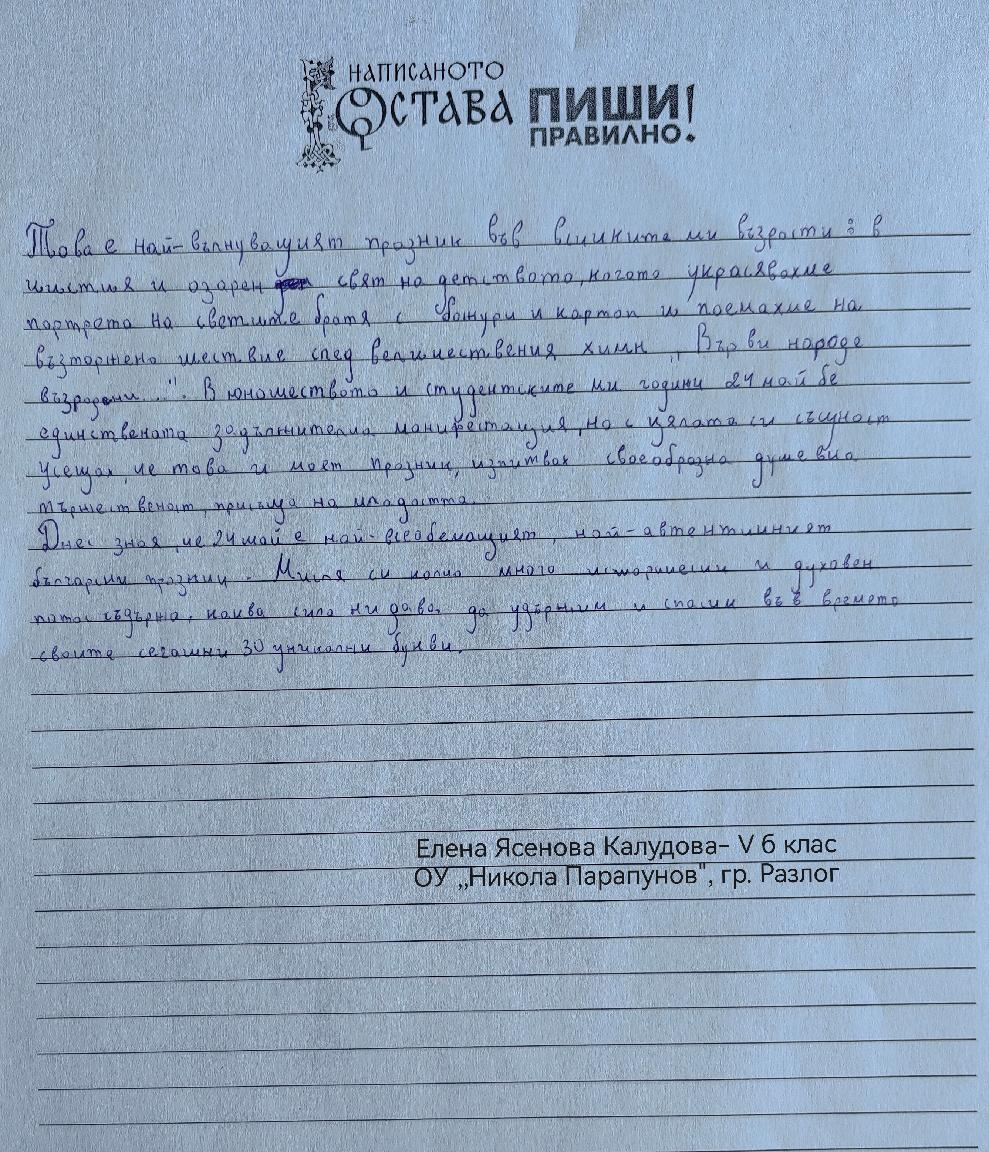 НАПИСАНОТО
ОСТАВА ПИШИ
ПРАВИЛНО!
Това е най-вълнуващият празник във всичките ми възрасти: в
чистия и озарен свят на детството, когато украсявахме
портрета на светите братя с божури и картоп и поемахме на
възторжено шествие след величествения химн „Върви народе
възродени...". В юношеството и студентските ми години 24 май бе
единствената задължителна манифестация, но с цялата си същност
усещах, че това и моят празник, изпитвах своеобразна душевна
тържественост, присъща на младостта.
Днес зная, че 24 май е най-всеобемащият, най-автентичният
български празник. Мисля си колко много исторически и духовен
патос съдържа, каква сила ни дава, да удържим и спасим във времето
своите сегашни 30 уникални букви.
Елена Ясенова Калудова- V б клас
ОУ „Никола Парапунов", гр. Разлог